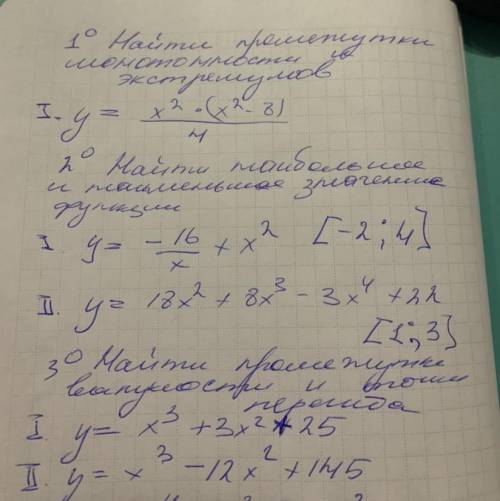 1° Найти промежутки
монотонности и
экстремумов
I. y = x² · (x² - 8) / 4
2° Найти наибольшее
и наименьшее значение
функции
I. y = -16/x + x² [-2; 4]
II. y = 18x² + 8x³ - 3x⁴ + 22
[1; 3]
3° Найти промежутки
выпуклости и точки
перегиба
I. y = x³ + 3x² + 25
II. y = x³ - 12x² + 145